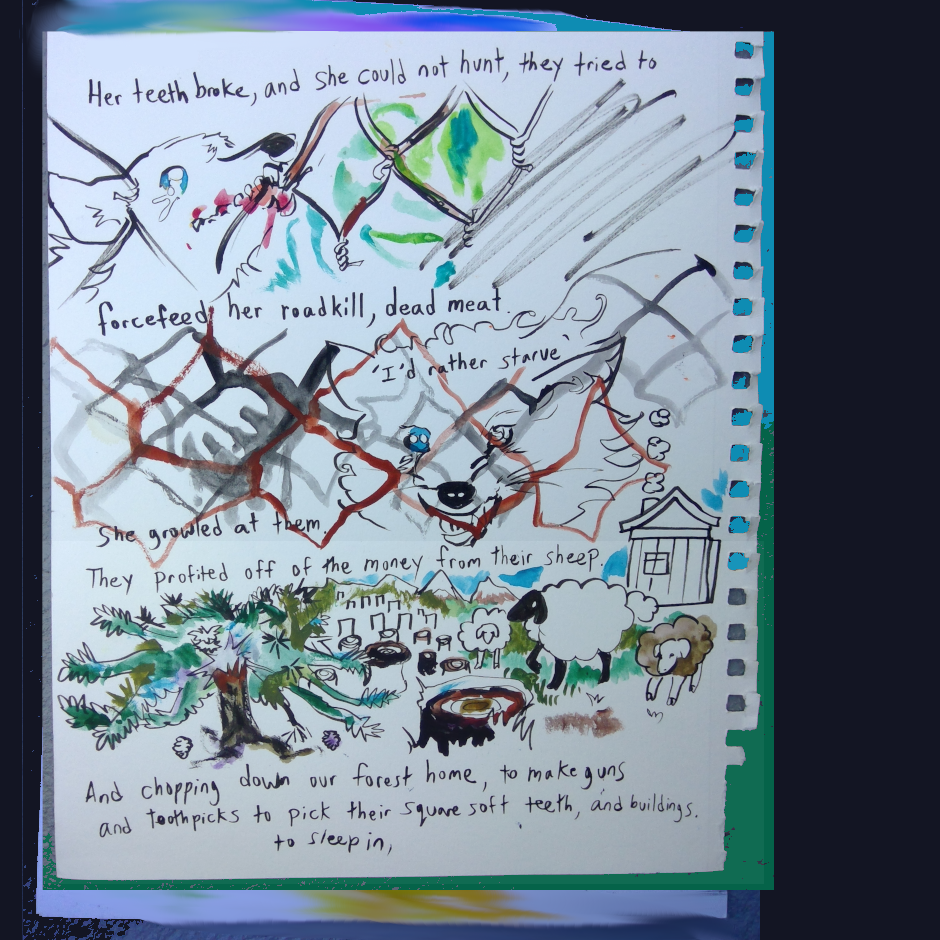 Her teeth broke, and she could not hunt, they tried to
forcefeed her roadkill, dead meat.
'I'd rather starve'
She growled at them.
They profited off of the money from their sheep.
And chopping down our forest home, to make guns
and toothpicks to pick their square soft teeth, and buildings.
to sleep in,